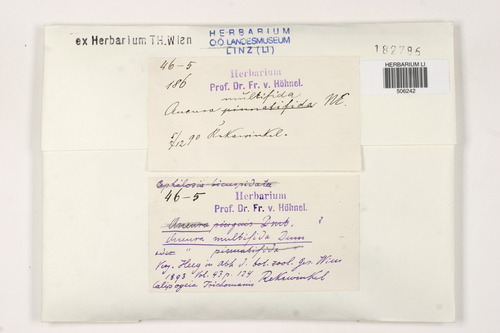 ex Herbarium TH.Wien
HERBARIUM
OÖ LANDESMUSEUM
LINZ (LI)
182795
HERBARIUM LI
506242
46-5
186
Herbarium
Prof. Dr. Fr. v. Höhnel.
multifida
Aneura pinnatifida NE.
5/12 90 Rekawinkel.
Cephalozia bicuspidata
46-5
Herbarium
Prof. Dr. Fr. v. Höhnel.
Aneura pinguis Dmt. ?
Aneura multifida Dum
pinnatifida
Vrg. Heeg in Abh d. bot. zool. Ges. Wien
1893 Vol. 43 p. 124
Calypogeia Trichomanis Rekawinkel